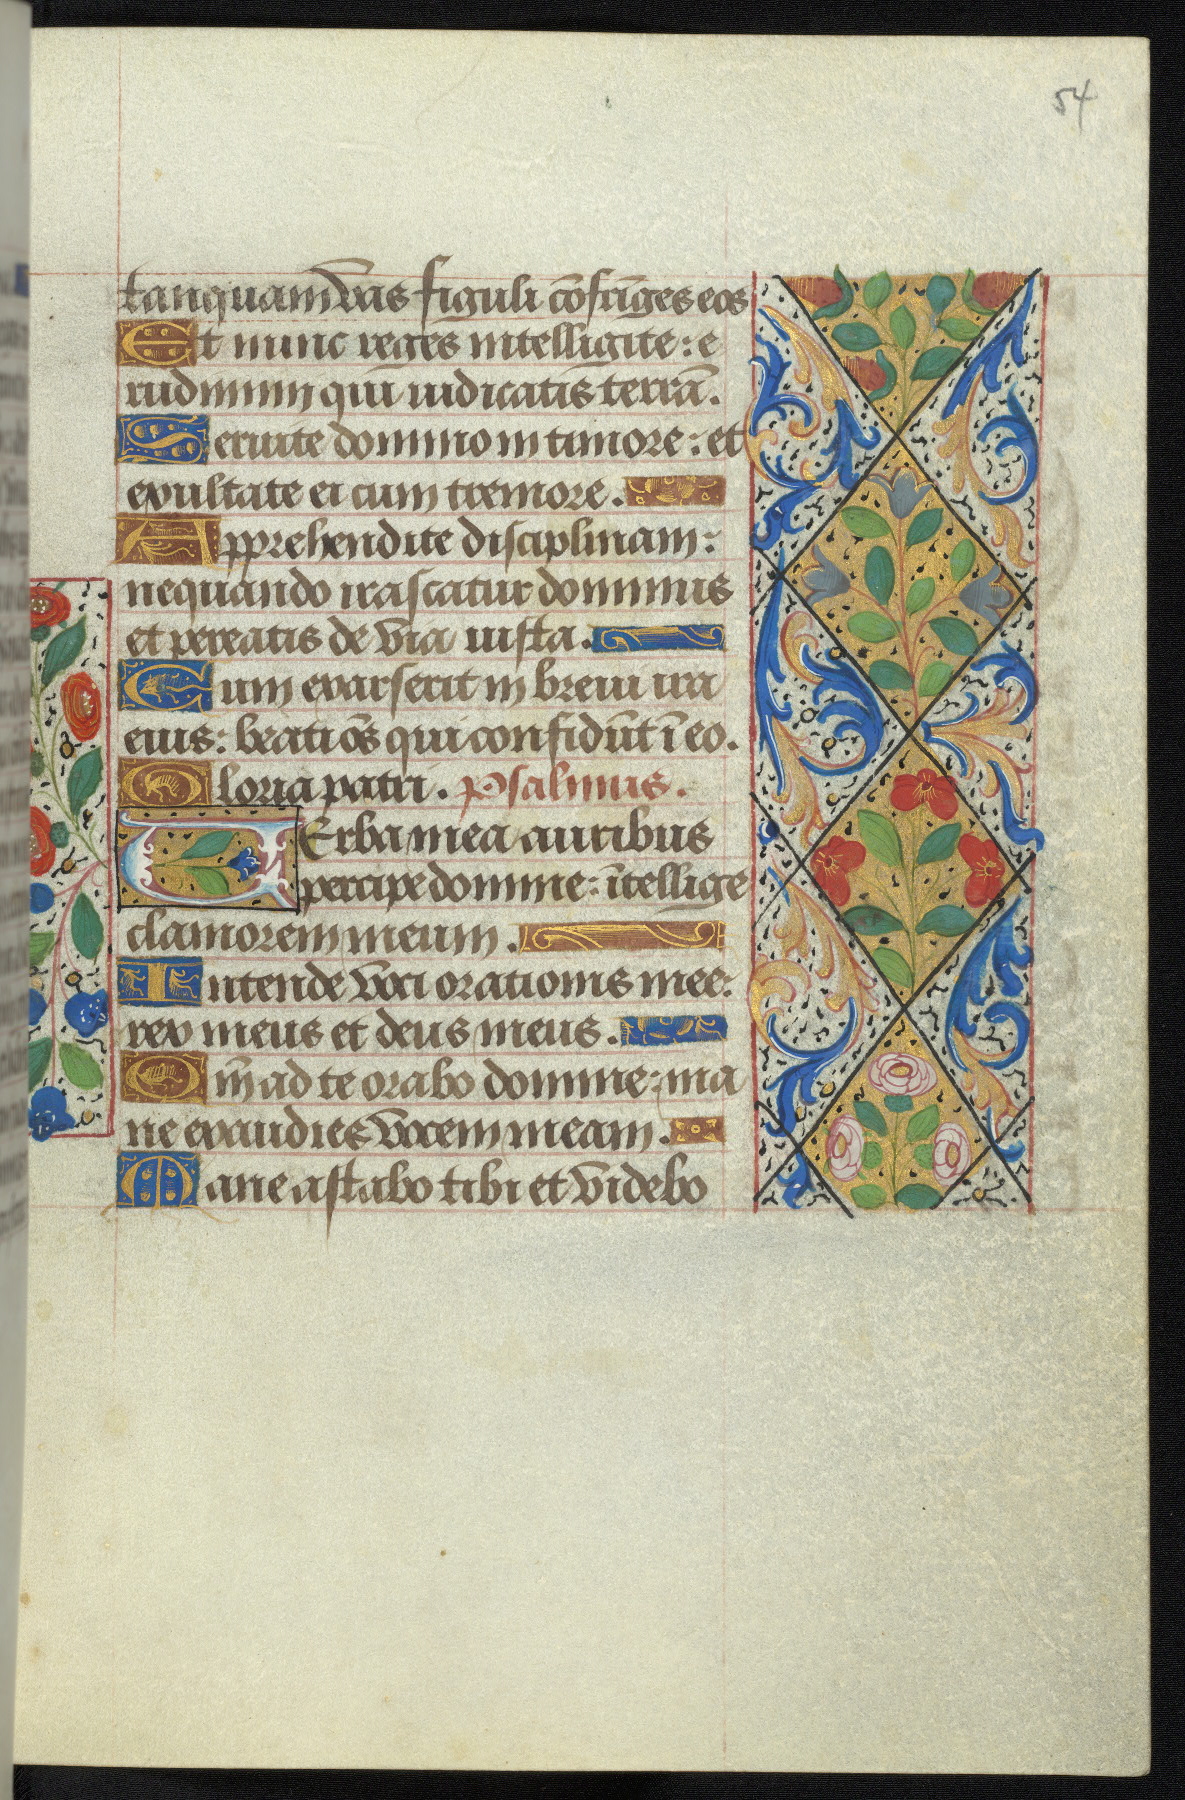 54
tanquam vas figuli cōfrīges eos
Et nunc reges intelligite: e
rudimini qui iudicatis terrā.
Seruite domino in timore: et
exultate ei cum tremore.
Apprehendite disciplinam:
nequando irascatur dominus
et pereatis de via iusta.
Cum exarserit in breui ira
eius: beati os̄ qui confidūt ī eo.
Gloria patri. Psalmus.
VErba mea auribus
percipe domine: ītellige
clamorem meum.
Intende voci orationis mee:
rex meus et deus meus.
Qm̄ ad te orabo domine: ma
ne exaudies vocem meam.
Mane astabo tibi et videbo